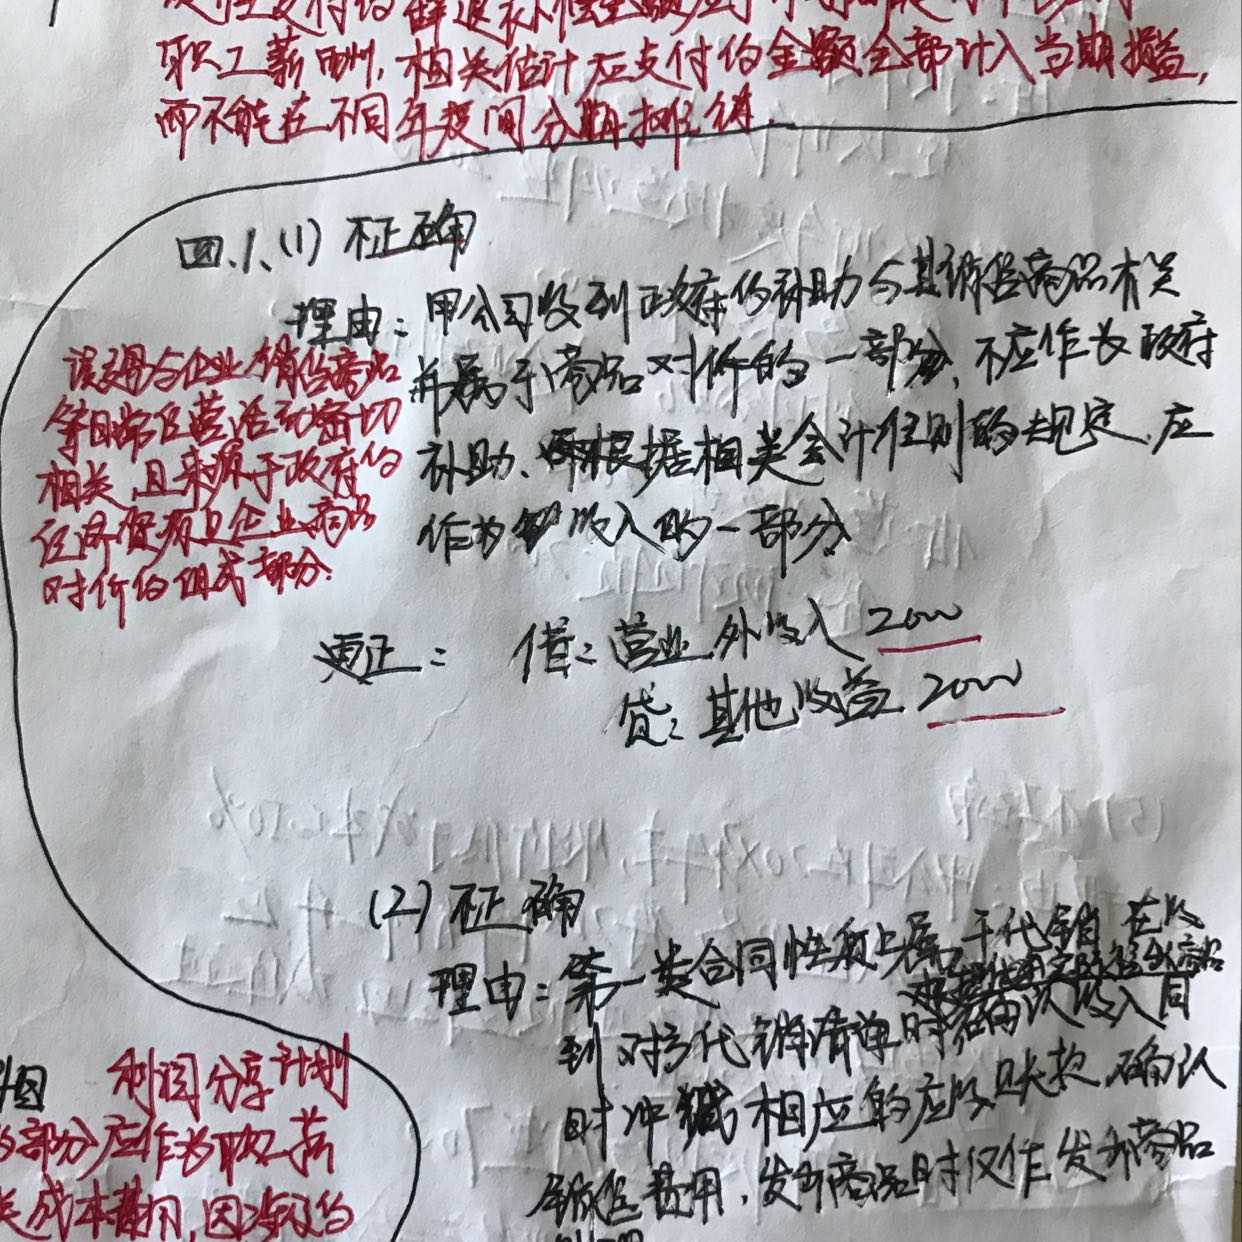 职工薪酬,相关估计应支付的金额全部计入当期损益,
而不能在不同年度间分期摊销.
四.1.(1) 不正确
理由:甲公司收到政府的补助与其销售商品有关
并属于商品对价的一部分,不应作为政府
补助、而根据相关会计准则的规定,应
作为收入的一部分
该交易与企业销售商品
等日常经营活动密切
相关,且来源于政府的
经济资源是企业商品
对价的组成部分.
更正: 借:营业外收入 2000
贷:其他收益 2000
(2) 不正确
理由:第一类合同性质上属于代销,在收
到对方代销清单时确认收入同
时冲减相应的应收账款,确认
销售费用,发出商品时仅作发出商品
利润分享计划
的部分应作为职工薪
关成本费用,因